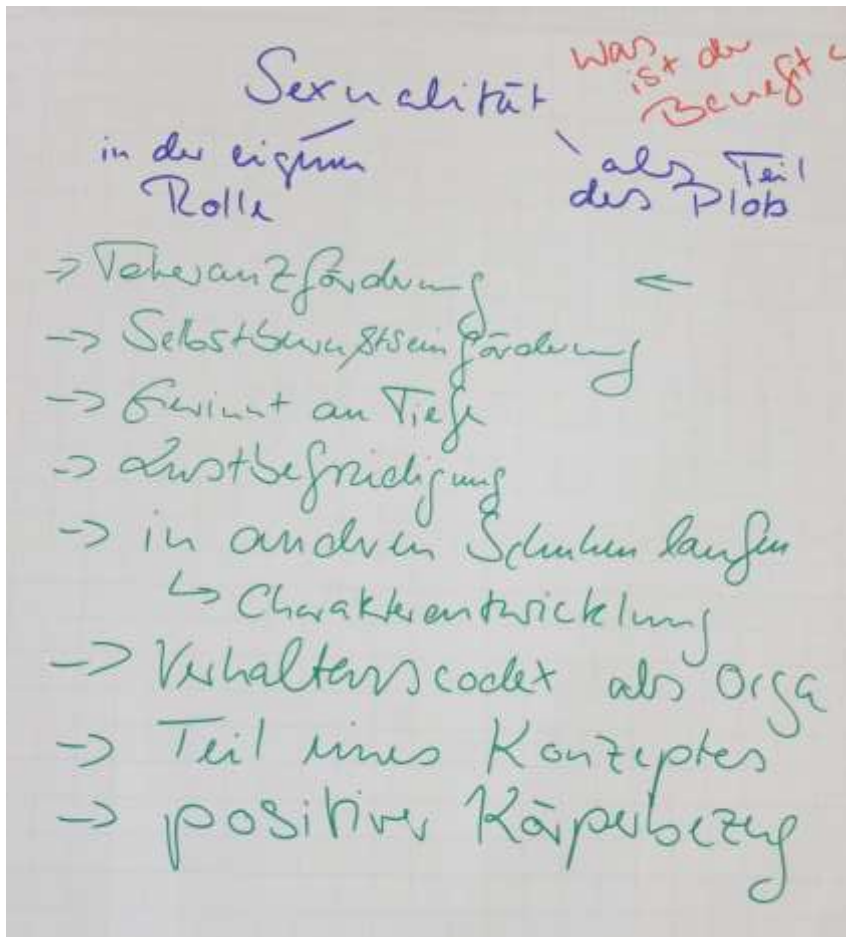 Sexualität
was
ist der
Benefit
in der eigenen
Rolle
als Teil
des Plots
-> Toleranzförderung <-
-> Selbstbewusstseinförderung
-> Gewinnt an Tiefe
-> Lustbefriedigung
-> in anderen Schuhen laufen
↳ Charakterentwicklung
-> Verhaltenscodex als Orga
-> Teil eines Konzeptes
-> positiver Körperbezug